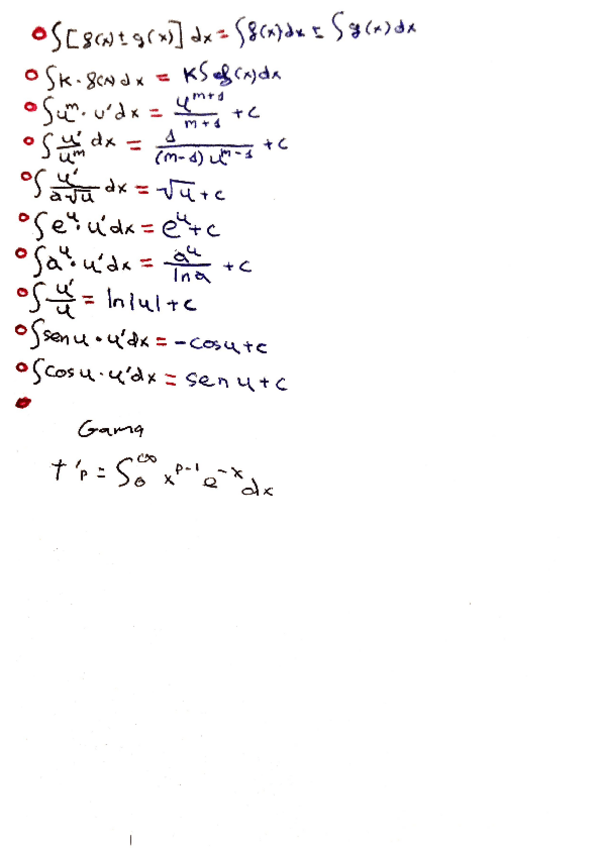 ∫[f(x) ± g(x)] dx = ∫f(x)dx ± ∫g(x)dx
∫K · f(x) dx = K∫f(x)dx
∫u^m · u' dx = u^(m+1)/(m+1) + c
∫u'/u^m dx = 1/((m-1) u^(m-1)) + c
∫u'/(a√u) dx = √u + c
∫e^u · u'dx = e^u + c
∫a^u · u'dx = a^u/ln a + c
∫u'/u = ln|u| + c
∫sen u · u'dx = -cos u + c
∫cos u · u'dx = sen u + c
Gama
†'p = ∫_0^∞ x^(p-1) e^(-x) dx